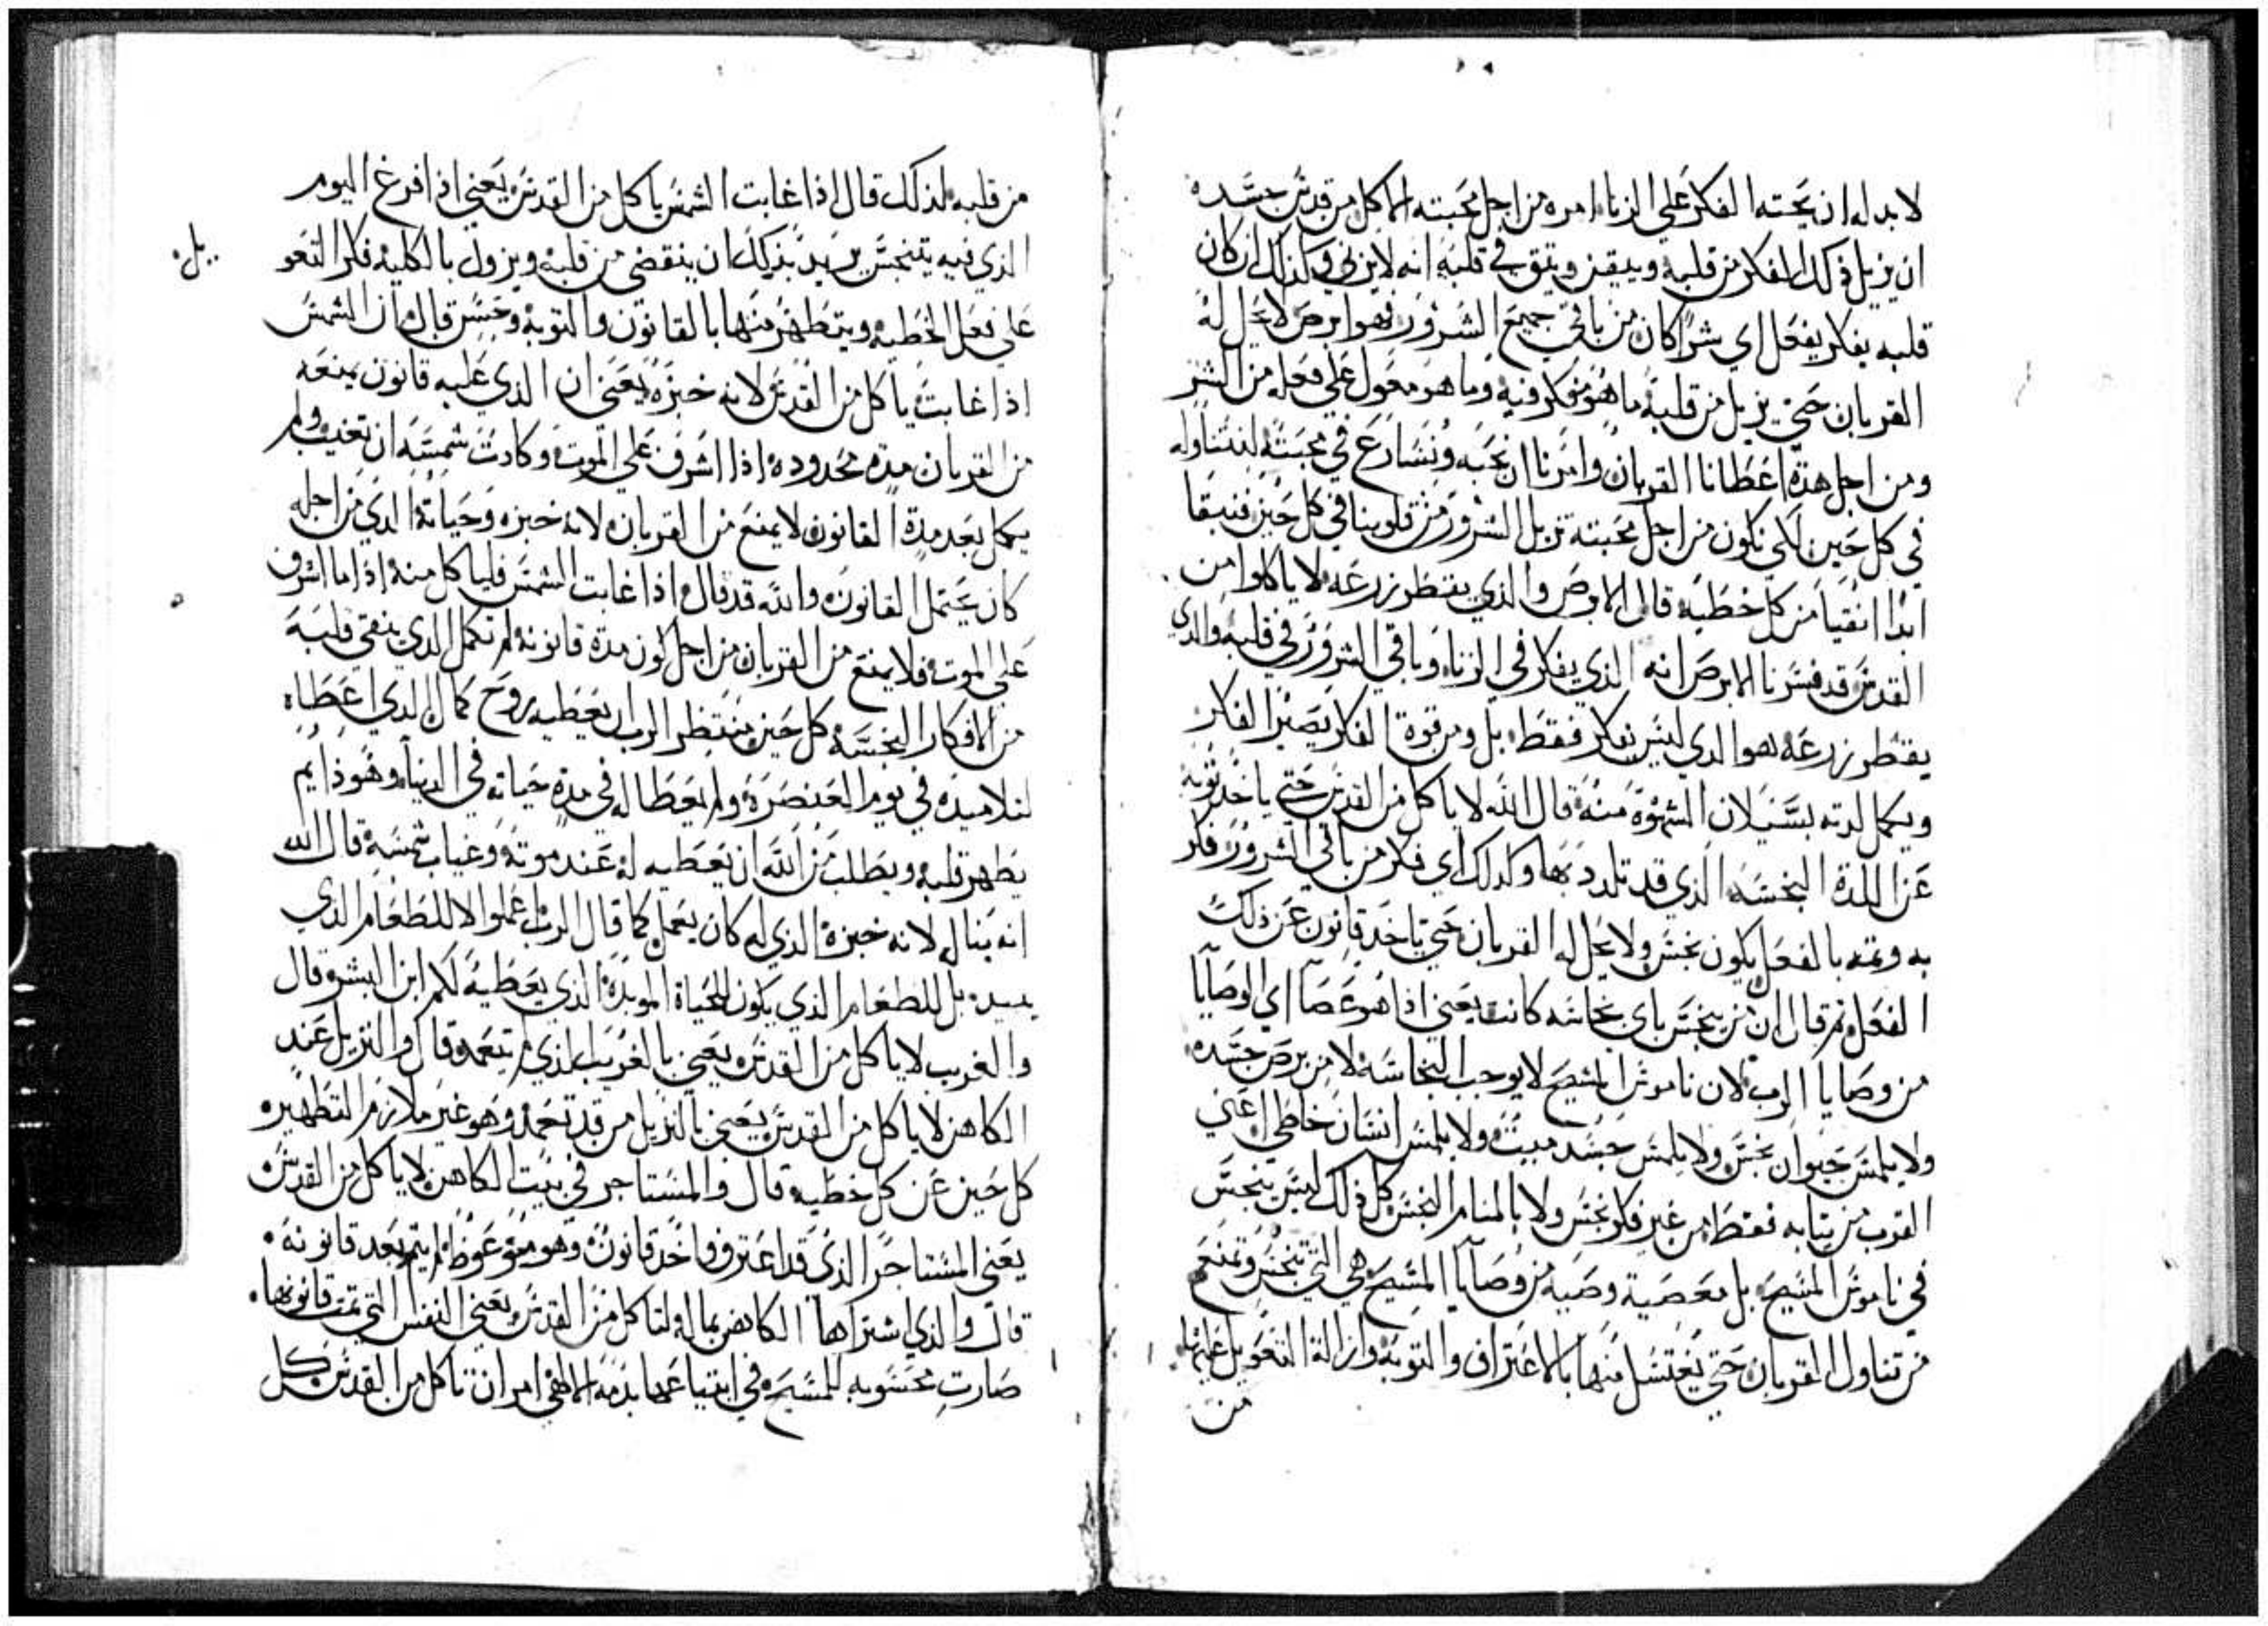 لا بد له ان يحته الفكر على الزنا امره من اجل محبته الماكل من قدس جسده
ان يزيل ذلك الفكر من قلبه ويتيقن ويتق في قلبه انه لا يزني وكذلك ان كان
قلبه يفكر يفعل اي شرا كان من باقي جميع الشرور فهو ابرص لا يحل له
القربان حتي يزيل من قلبه ما هو مفكر فيه وما هو معول علي فعله من الشر
ومن اجل هذه اعطانا القربان وامرنا ان نحبه ونسارع في محبته لنتناوله
في كل حين لكي نكون من اجل محبته نزيل الشرور من قلوبنا في كل حين فنبقا
ابدا انقيا من كل خطيه قال الابرص والذي يقطر زرعه لا ياكلوا من
القدس قد فسرنا الابرص انه الذي يفكر في الزنا وباقي الشرور في قلبه والذي
يقطر زرعه هو الذي ليس يفكر فقط بل ومن قوة الفكر يصير الفكر
ويكمل لدته بسيلان الشهوة منه قال الله لا ياكل من القدس حتي ياخد توبه
عن اللدة النجسه الذي قد تلدد بها وكدلك اي فكر من باقي الشرور فكر
به وتمه بالفعل يكون نجس ولا يحل له القربان حتي ياخد قانون عن ذلك
الفعل ثم قال ان من ينجس باي نجاسه كانت يعني اذا هو عصا اي الوصايا
من وصايا الرب لان ناموس المسيح لا يوجب النجاسه لا من برص جسده
ولا يلمس حيوان نجس ولا يلمس جسد ميت ولا يلمس انسان خاطي اعني
القرب من تيابه فقط من غير فكر نجس ولا بالمنام النجس كل ذلك ليس ينجس
في ناموس المسيح بل معصية وصيه من وصايا المسيح هي التي تنجس وتمنع
من تناول القربان حتي يغتسل منها بالاعتراف والتوبه وازالة التعويل عليها
من
من قلبه لذلك قال اذا غابت الشمس ياكل من القدس يعني اذا فرغ اليوم
الذي فيه يتنجس يريد بذلك ان ينقضي من قلبه ويزول بالكليه فكر التعو
يل
علي فعل الخطيه ويتطهر منها بالقانون والتوبه وحسن قال ان الشمس
اذا غابت ياكل من القدس لانه خبزه يعني ان الذي عليه قانون يمنعه
من القربان مدة محدوده اذا اشرف علي الموت وكادت شمسه ان تغيب ولم
يكمل بعد مدة القانون لا يمنع من القربان لانه خبزه وحياته الذي من اجله
كان يحتمل القانون والله قد قال واذا غابت الشمس فلياكل منه اذا ما اشرف
علي الموت فلا يمنع من القربان من اجل كون مدة قانونه لم تكمل الذي ينقي قلبه
من الافكار النجسه كل حين منتظر الرب ان يعطيه روح كمال الذي اعطاه
لتلاميذه في يوم العنصرة ولم يعطا له في مدة حياته في الدنيا وهو ذايم
يطهر قلبه ويطلب من الله ان يعطيه له عند موته وغياب شمسه قال الله
انه ينال لانه خبزه الذي له كان يعمل كما قال الرب اعملوا لا للطعام الذي
يبيد بل للطعام الذي يكون للحياة الموبدة الذي يعطيه لكم ابن البشر وقال
والغريب لا ياكل من القدس يعني بالغريب الذي لم يتعمد وقال والنزيل عند
الكاهن لا ياكل من القدس يعني بالنزيل من قد تعمد وهو غير ملازم التطهير
كل حين عن كل خطيه قال والمستاجر في بيت الكاهن لا ياكل من القدس
يعني المستاجر الذي قد اعترف واخد قانون وهو ممنوع وظ لم يتم بعد قانونه
قال والذي اشتراها الكاهن بماله لتاكل من القدس يعني النفس التي تمت قانونها
صارت محسوبه للمسيح في ابتياعها بذمه الالهي امر ان تاكل من القدس كل